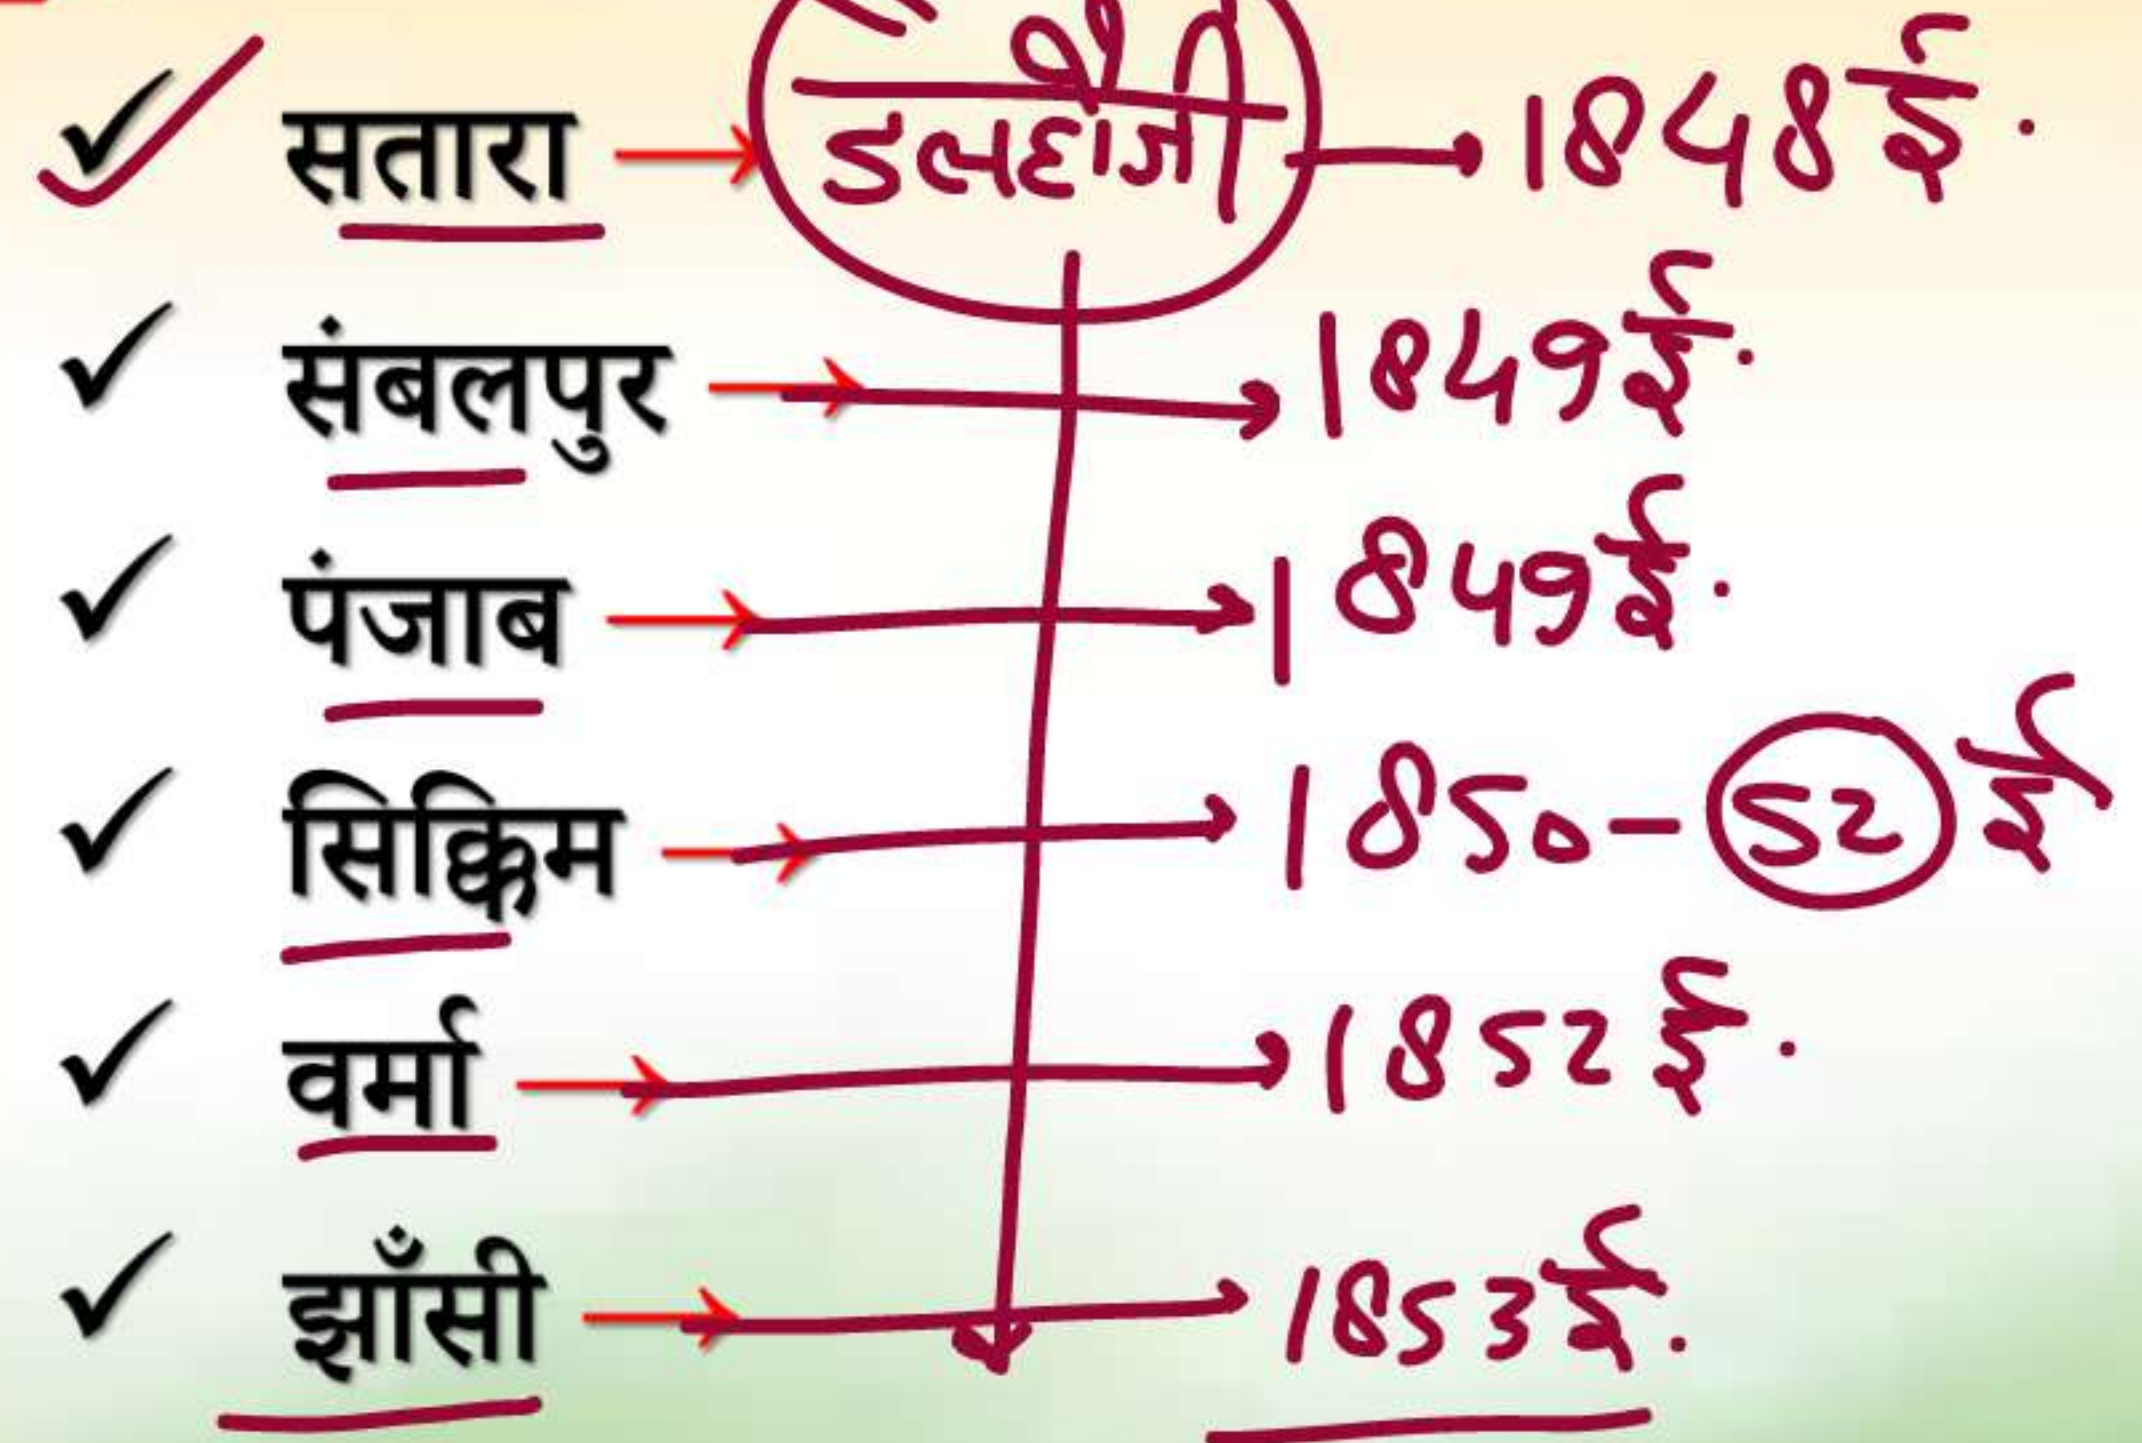 सतारा → डलहौजी → 1848 ई.
संबलपुर → 1849 ई.
पंजाब → 1849 ई.
सिक्किम → 1850-52 ई
वर्मा → 1852 ई.
झाँसी → 1853 ई.